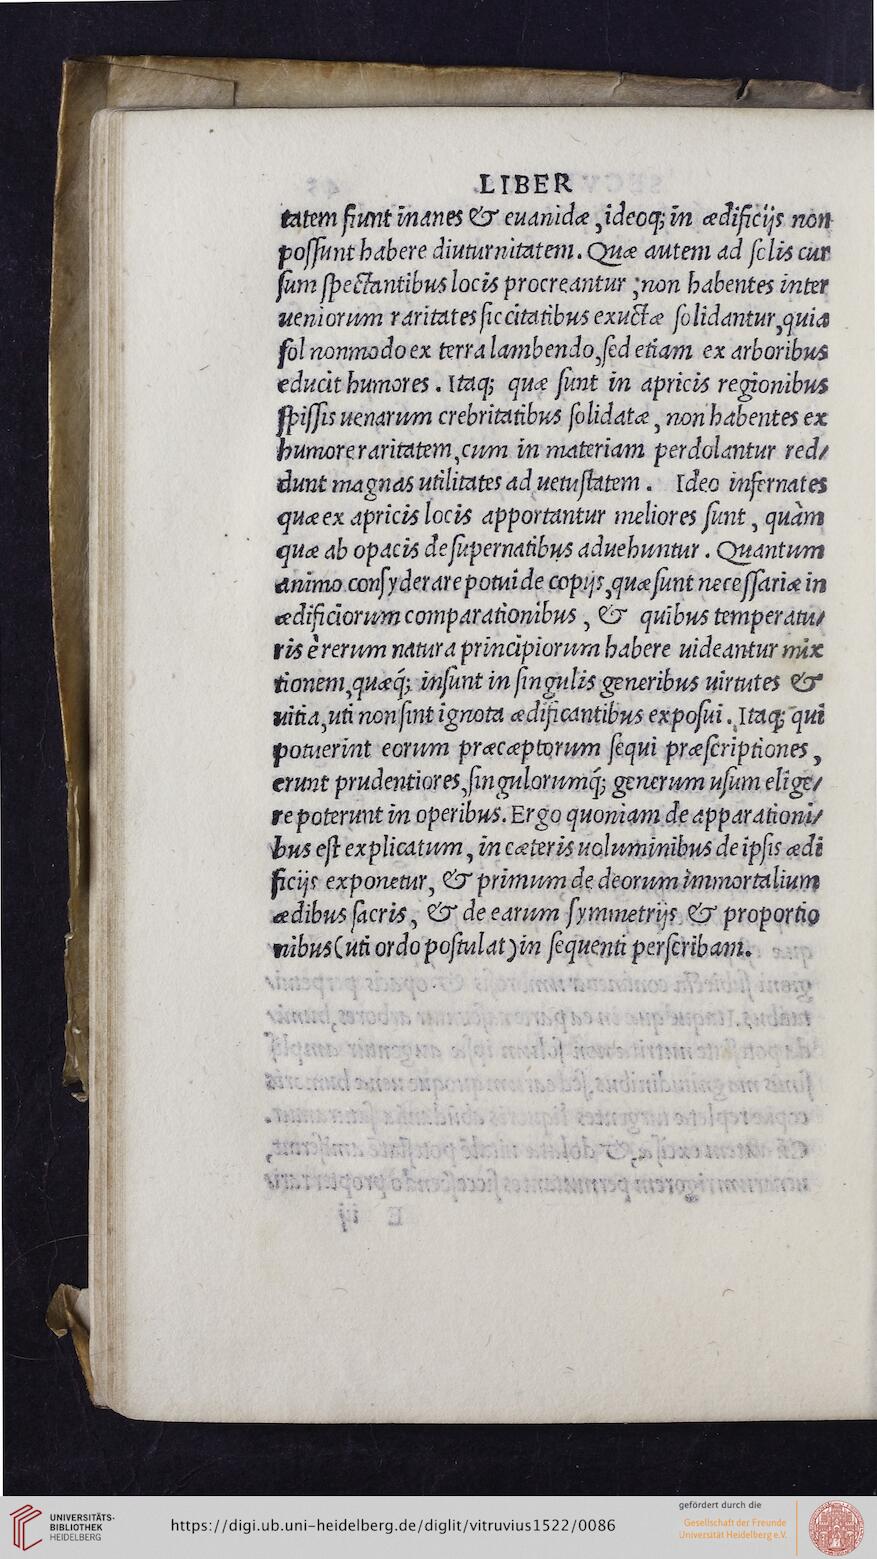 LIBER
tatem fiunt inanes & euanidæ, ideoq; in ædificijs non
possunt habere diuturnitatem. Quæ autem ad solis cur
sum spectantibus locis procreantur; non habentes inter
ueniorum raritates siccitatibus exuctæ solidantur, quia
sol nonmodo ex terra lambendo, sed etiam ex arboribus
educit humores. Itaq; quæ sunt in apricis regionibus
spissis uenarum crebritatibus solidatæ, non habentes ex
humore raritatem, cum in materiam perdolantur red/
dunt magnas utilitates ad uetustatem. Ideo infernates
quæ ex apricis locis apportantur meliores sunt, quàm
quæ ab opacis de supernatibus aduehuntur. Quantum
animo consyderare potui de copijs, quæ sunt necessariæ in
ædificiorum comparationibus, & quibus temperatu/
ris è rerum natura principiorum habere uideantur mix
tionem, quæq́; insunt in singulis generibus uirtutes &
uitia, uti non sint ignota ædificantibus exposui. Itaq; qui
potuerint eorum præcæptorum sequi præscriptiones,
erunt prudentiores, singulorumq́; generum usum elige/
re poterunt in operibus. Ergo quoniam de apparationi/
bus est explicatum, in cæteris uoluminibus de ipsis ædi
ficijs exponetur, & primum de deorum immortalium
ædibus sacris, & de earum symmetrijs & proportio
nibus (uti ordo postulat) in sequenti perscribam.
UNIVERSITÄTS-
BIBLIOTHEK
HEIDELBERG
https://digi.ub.uni-heidelberg.de/diglit/vitruvius1522/0086
gefördert durch die
Gesellschaft der Freunde
Universität Heidelberg e.V.